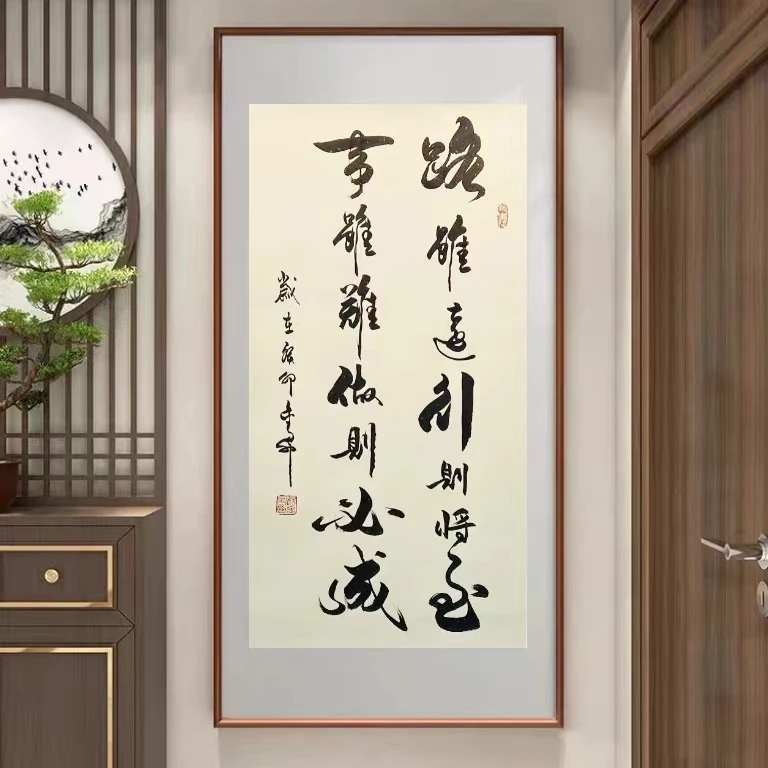 路雖遠行則将至
事雖難做則必成
歲在癸卯